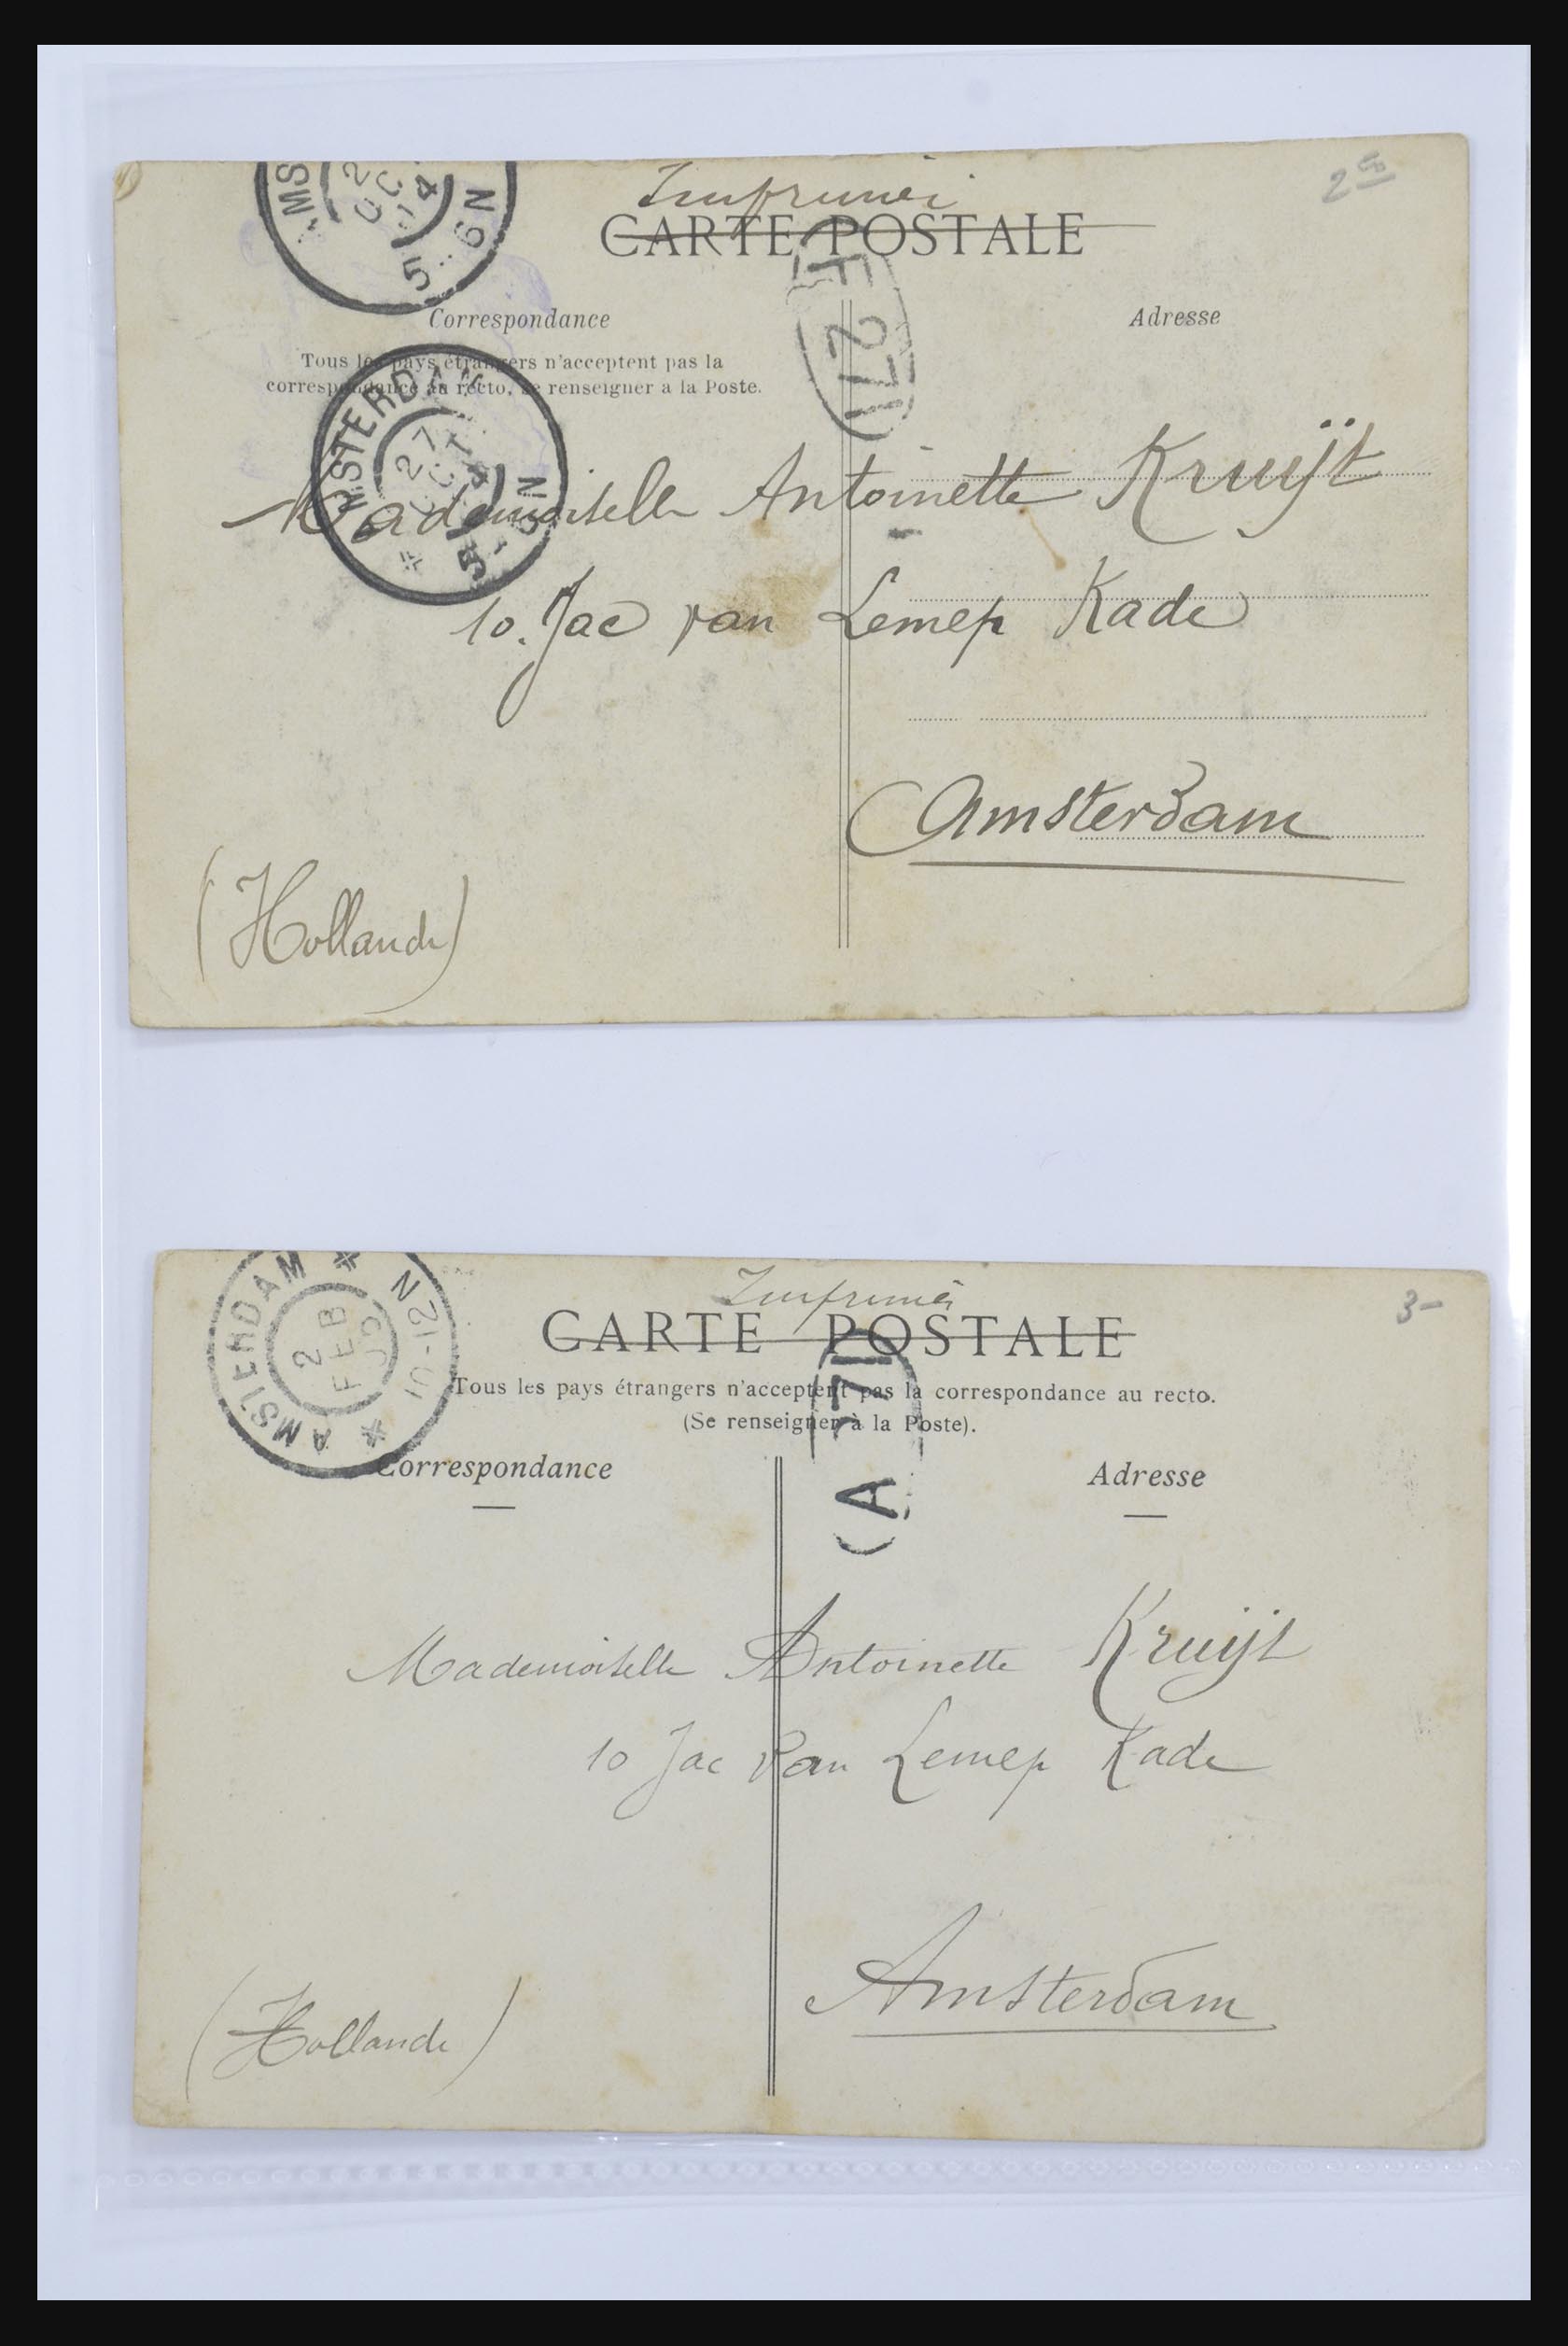 Imprimé
2 50
CARTE POSTALE
Correspondance
Adresse
Tous les pays étrangers n'acceptent pas la
correspondance au recto, se renseigner à la Poste.
5-6N
AMSTERDAM
27
5-6N
Mademoiselle Antoinette Kruÿt
10. Jac van Lennep Kade
Amsterdam
(Hollande)
Imprimé
3-
CARTE POSTALE
AMSTERDAM
2
FEB
10-12N
Tous les pays étrangers n'acceptent pas la correspondance au recto.
(Se renseigner à la Poste).
Correspondance
Adresse
A
Mademoiselle Antoinette Kruÿt
10 Jac Van Lennep Kade
Amsterdam
(Hollande)